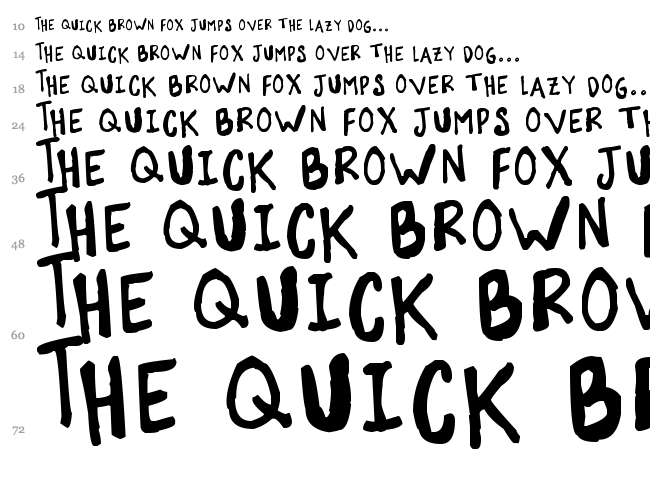 10 THE QUICK BROWN FOX JUMPS OVER THE LAZY DOG...
14 THE QUICK BROWN FOX JUMPS OVER THE LAZY DOG...
18 THE QUICK BROWN FOX JUMPS OVER THE LAZY DOG..
24 THE QUICK BROWN FOX JUMPS OVER TH
36 THE QUICK BROWN FOX JU
48 THE QUICK BROWN
60 THE QUICK BRO
72 THE QUICK B